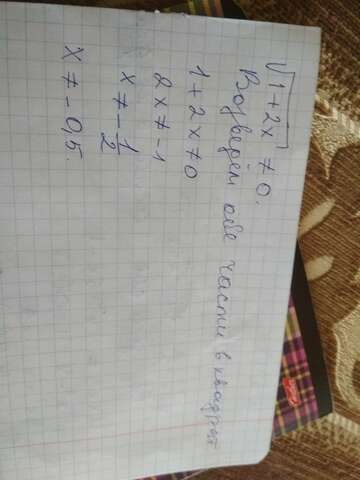 √1+2x ≠ 0.
Возведём обе части в квадрат
1+2x≠0
2x≠-1
x≠-1/2
x≠-0,5.